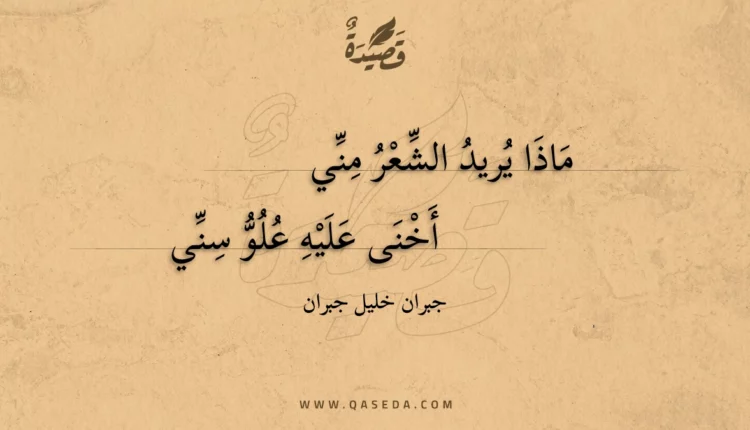 قَصِيدَةٌ
مَاذَا يُرِيدُ الشِّعْرُ مِنِّي
أَخْنَى عَلَيْهِ عُلُوُّ سِنِّي
جبران خليل جبران
WWW.QASEDA.COM